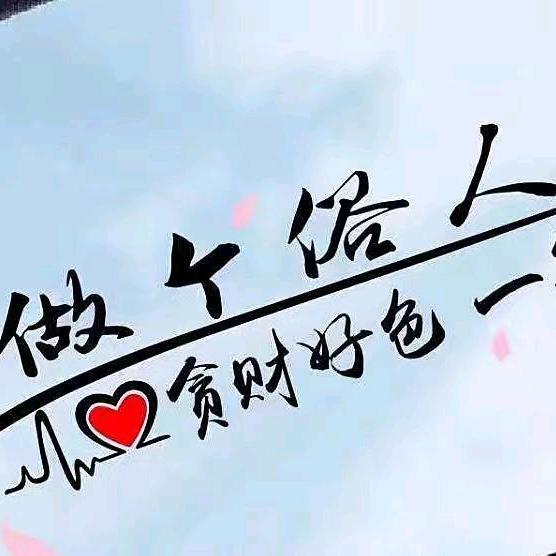 做个俗人
贪财好色 一